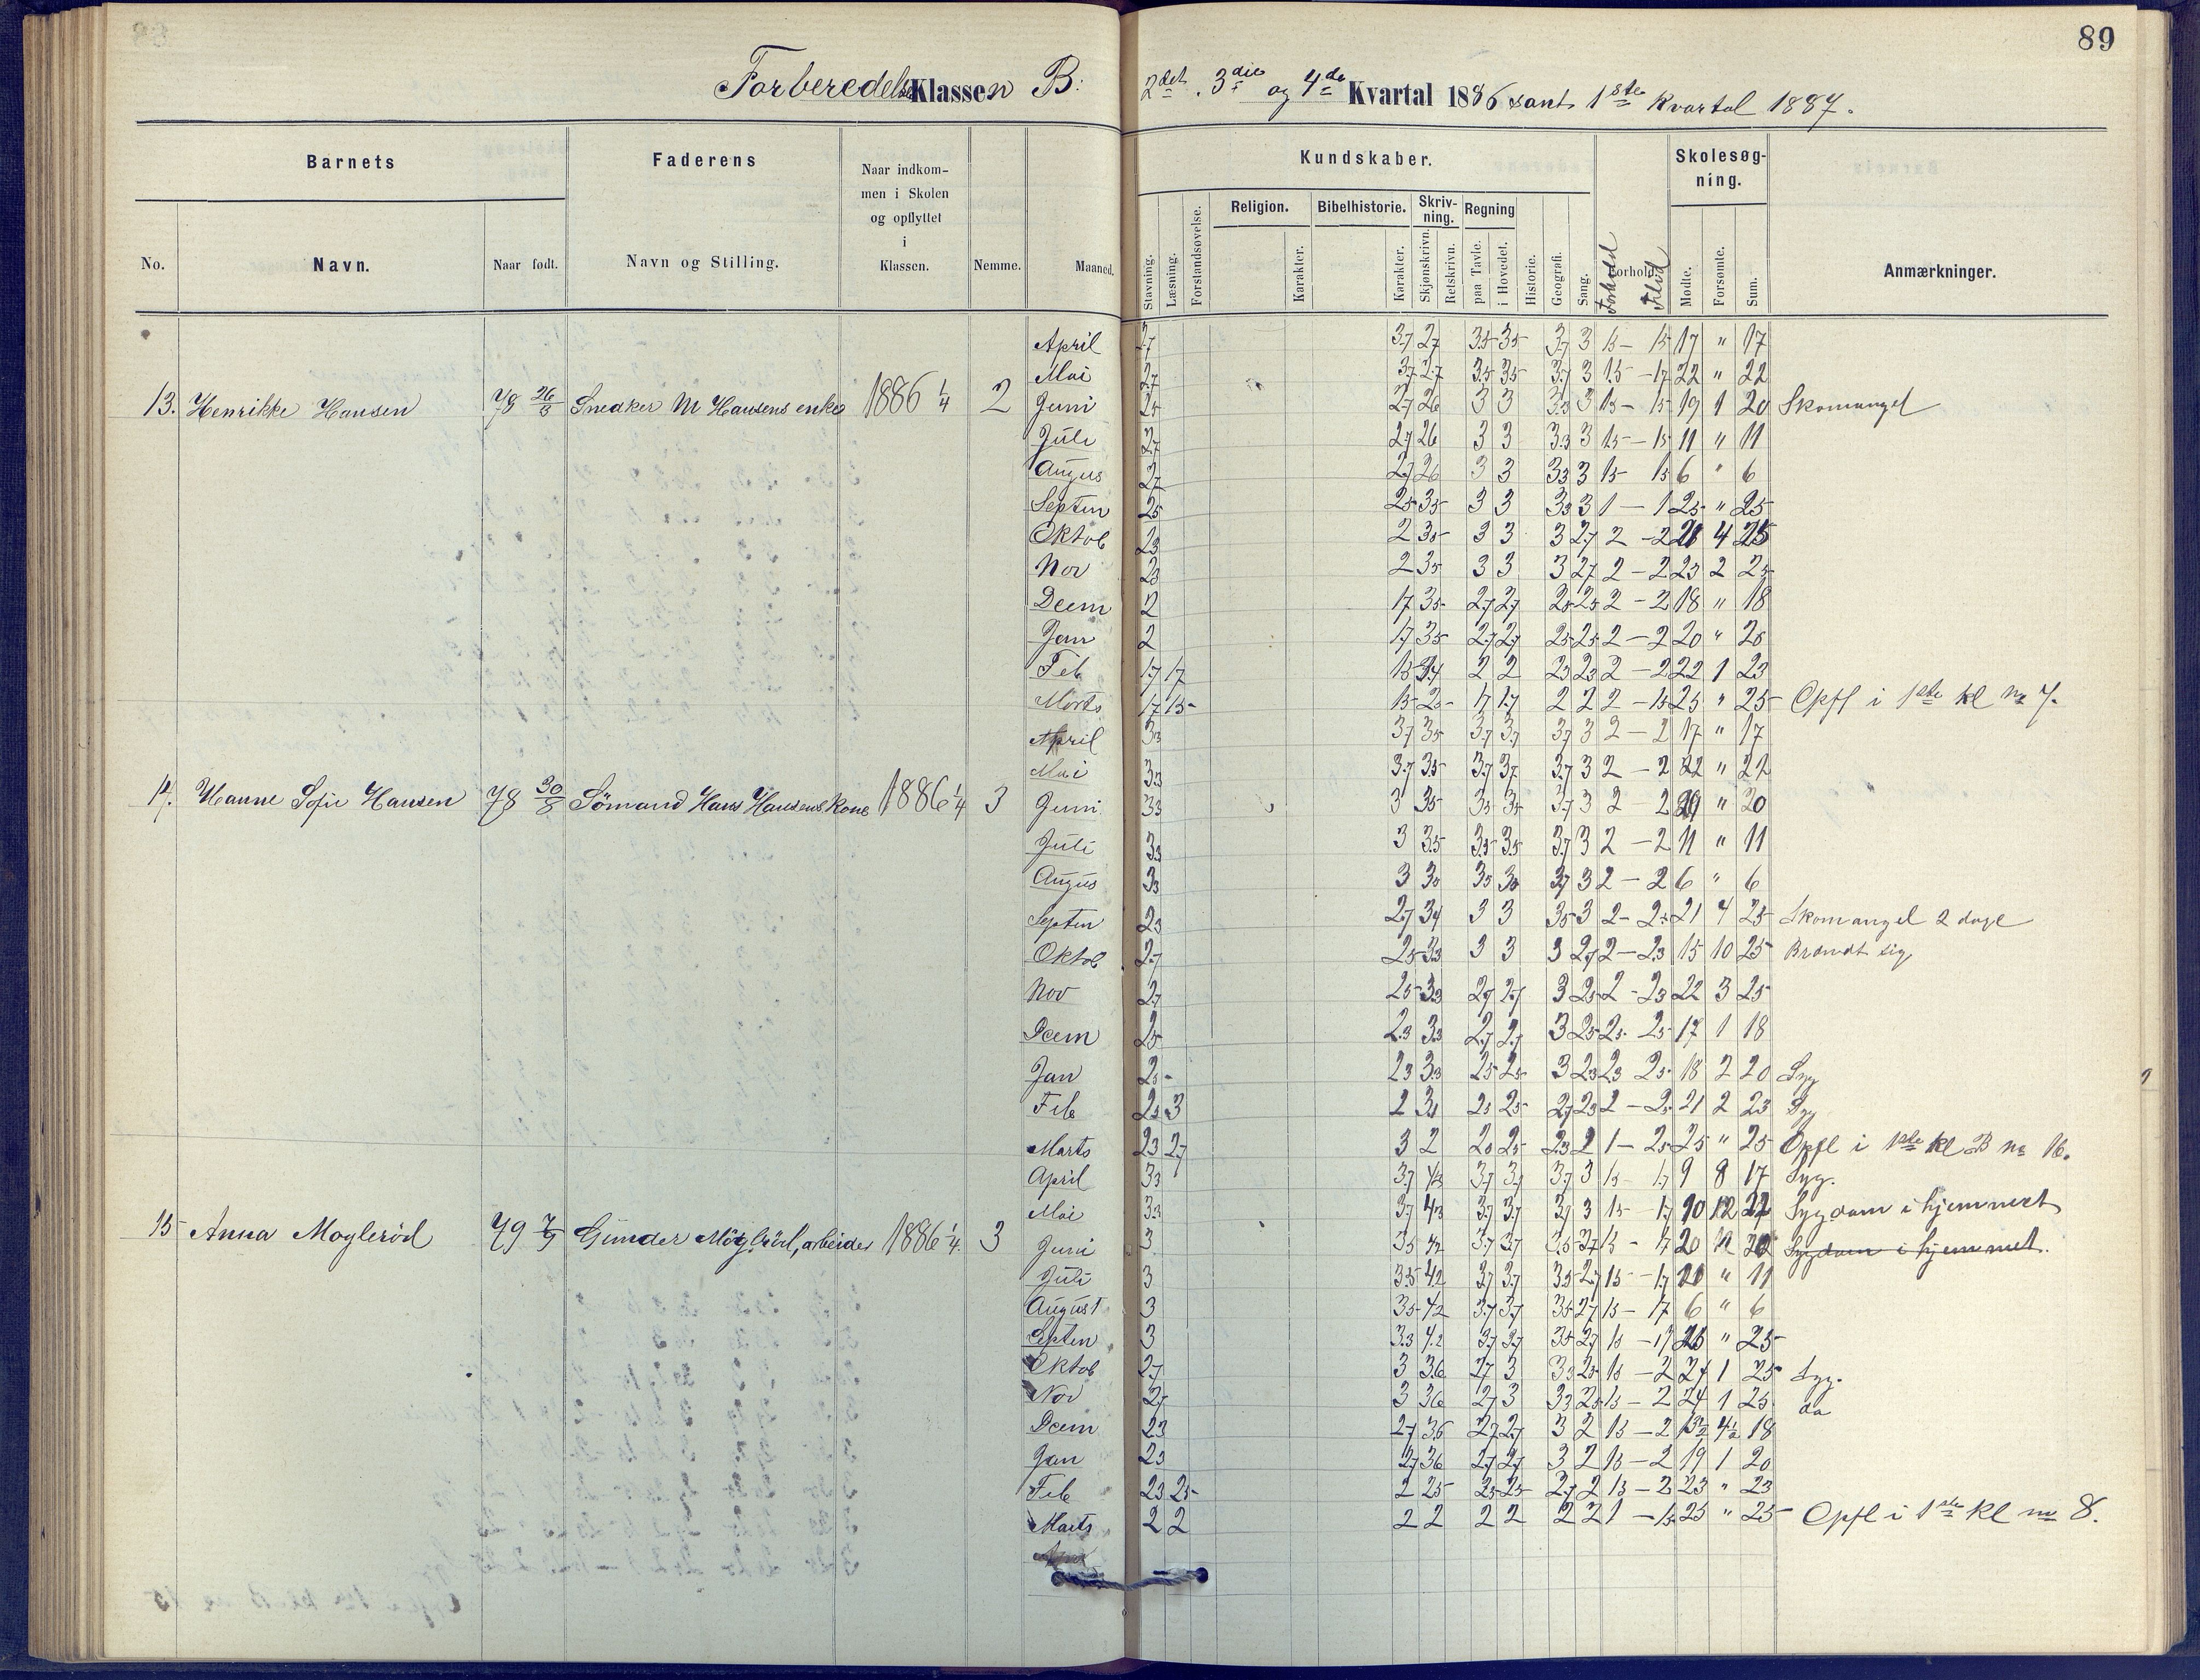 89
Forberedelses Klassen B: 2det, 3die og 4de Kvartal 1886 samt 1ste Kvartal 1887.
Barnets Faderens Naar indkommen i Skolen og opflyttet i Klassen. Nemme. Maaned. Kundskaber. Forhold. Skolesøgning. Anmærkninger.
No. Navn. Naar født. Navn og Stilling.
Stavning. Læsning. Forstandsøvelse. Religion. Karakter. Bibelhistorie. Karakter. Skrivning. Skjønskrivn. Retskrivn. Regning paa Tavle. i Hovedet. Historie. Geografi. Sang. Forhold Flid Mødte. Forsømte. Sum.
April 2.7 3.7 2.7 3.5 3.5 3.7 3 1.5 – 1.5 17 " 17
Mai 2.7 3.7 2.7 3.5 3.5 3.7 3 1.5 – 1.7 22 " 22
13. Henrikke Hansen 78 26/3 Snedker M Hansens enke 1886 1/4 2 Juni 2.5 2.7 2.6 3 3 3.3 3 1.5 – 1.5 19 1 20 Skomangel
Juli 2.7 2.7 2.6 3 3 3.3 3 1.5 – 1.5 11 " 11
Augus 2.7 2.7 2.6 3 3 3.3 3 1.5 1.5 6 " 6
Septem 2.5 2.5 3.5 3 3 3.3 3 1 – 1 25 " 25
Oktob 2.3 2 3.5 3 3 3 2.7 2 – 2 21 4 25
Nov 2.3 2 3.5 3 3 3 2.7 2 – 2 23 2 25
Decm 2 1.7 3.5 2.7 2.7 2.5 2.5 2 – 2 18 " 18
Jan 2 1.7 3.5 2.7 2.7 2.5 2.5 2 – 2 20 " 20
Feb 1.7 1.7 1.5 3.4 2 2 2.3 2.3 2 – 2 22 1 23
Marts 1.7 1.5 1.5 2.5 1.7 1.7 2 2 2 – 1.5 25 " 25 Opfl i 1ste kl no 7.
April 3.3 3.7 3.5 3.7 3.7 3.7 3 2 – 2 17 " 17
Mai 3.3 3.7 3.5 3.7 3.7 3.7 3 2 – 2 22 " 22
14. Hanne Sofie Hansen 78 30/8 Sömand Hans Hansens kone 1886 1/4 3 Juni 3.3 3 3.5 3.5 3.5 3.7 3 2 – 2 20 " 20
Juli 3.3 3 3.5 3.5 3.5 3.7 3 2 – 2 11 " 11
Augus 3.3 3 3.5 3.5 3.5 3.7 3 2 – 2 6 " 6
Septem 2.3 2.7 3.4 3 3 3.5 3 2 – 2.5 21 4 25 Skomangel 2 dage
Oktob 2.7 2.5 3.3 3 3 3 2.7 2 – 2.3 15 10 25 Brændt sig
Nov 2.7 2.5 3.3 2.7 2.7 3 2.5 2 – 2.3 22 3 25
Decm 2.5 2.3 3.3 2.7 2.7 3 2.5 2.5 2.5 17 1 18
Jan 2.5 2.3 3.3 2.5 2.5 3 2.3 2.3 2.5 18 2 20 Syg
Feb 2.5 3 2 3.1 2.5 2.5 2.7 2.3 2 – 2.5 21 2 23 Syg
Marts 2.3 2.7 3 2 2.5 2.5 2.3 2 1 – 2.5 25 " 25 Opfl i 1ste kl B no 16.
April 3.3 3.7 4.3 3.7 3.7 3.7 3 1.5 – 1.7 9 8 17 Syg.
Mai 3.3 3.7 4.3 3.7 3.7 3.7 3 1.5 – 1.7 10 12 22 Sygdom i hjemmet
15 Anna Moglerød 79 7/9 Gunder Möglerød, arbeider 1886 1/4. 3 Juni 3 3.5 4.2 3.7 3.7 3.5 2.7 1.5 – 1.7 20 " 20 Sygdom i hjemmet.
Juli 3 3.5 4.2 3.7 3.7 3.5 2.7 1.5 – 1.7 11 " 11
August 3 3.5 4.2 3.7 3.7 3.5 2.7 1.5 – 1.7 6 " 6
Septem 3 3.3 4.2 3.7 3.7 3.5 2.7 1.5 – 1.7 25 " 25
Oktob 2.7 3 3.6 2.7 3 3.3 2.5 1.5 – 2 24 1 25 Syg.
Nov 2.7 3 3.6 2.7 3 3.3 2.5 1.5 – 2 24 1 25 do
Decm 2.3 2.7 3.6 2.7 2.7 3 2 1.5 – 2 13½ 4½ 18
Jan 2.3 2.7 3.6 2.7 2.7 3 2 1.5 – 2 19 1 20
Feb 2.3 2.5 2 2.5 2.5 2.5 2.7 2 1.5 – 2 23 " 23
Marts 2 2 2 2 2 2 2 2 1 – 1.5 25 " 25 Opfl i 1ste kl no 8.